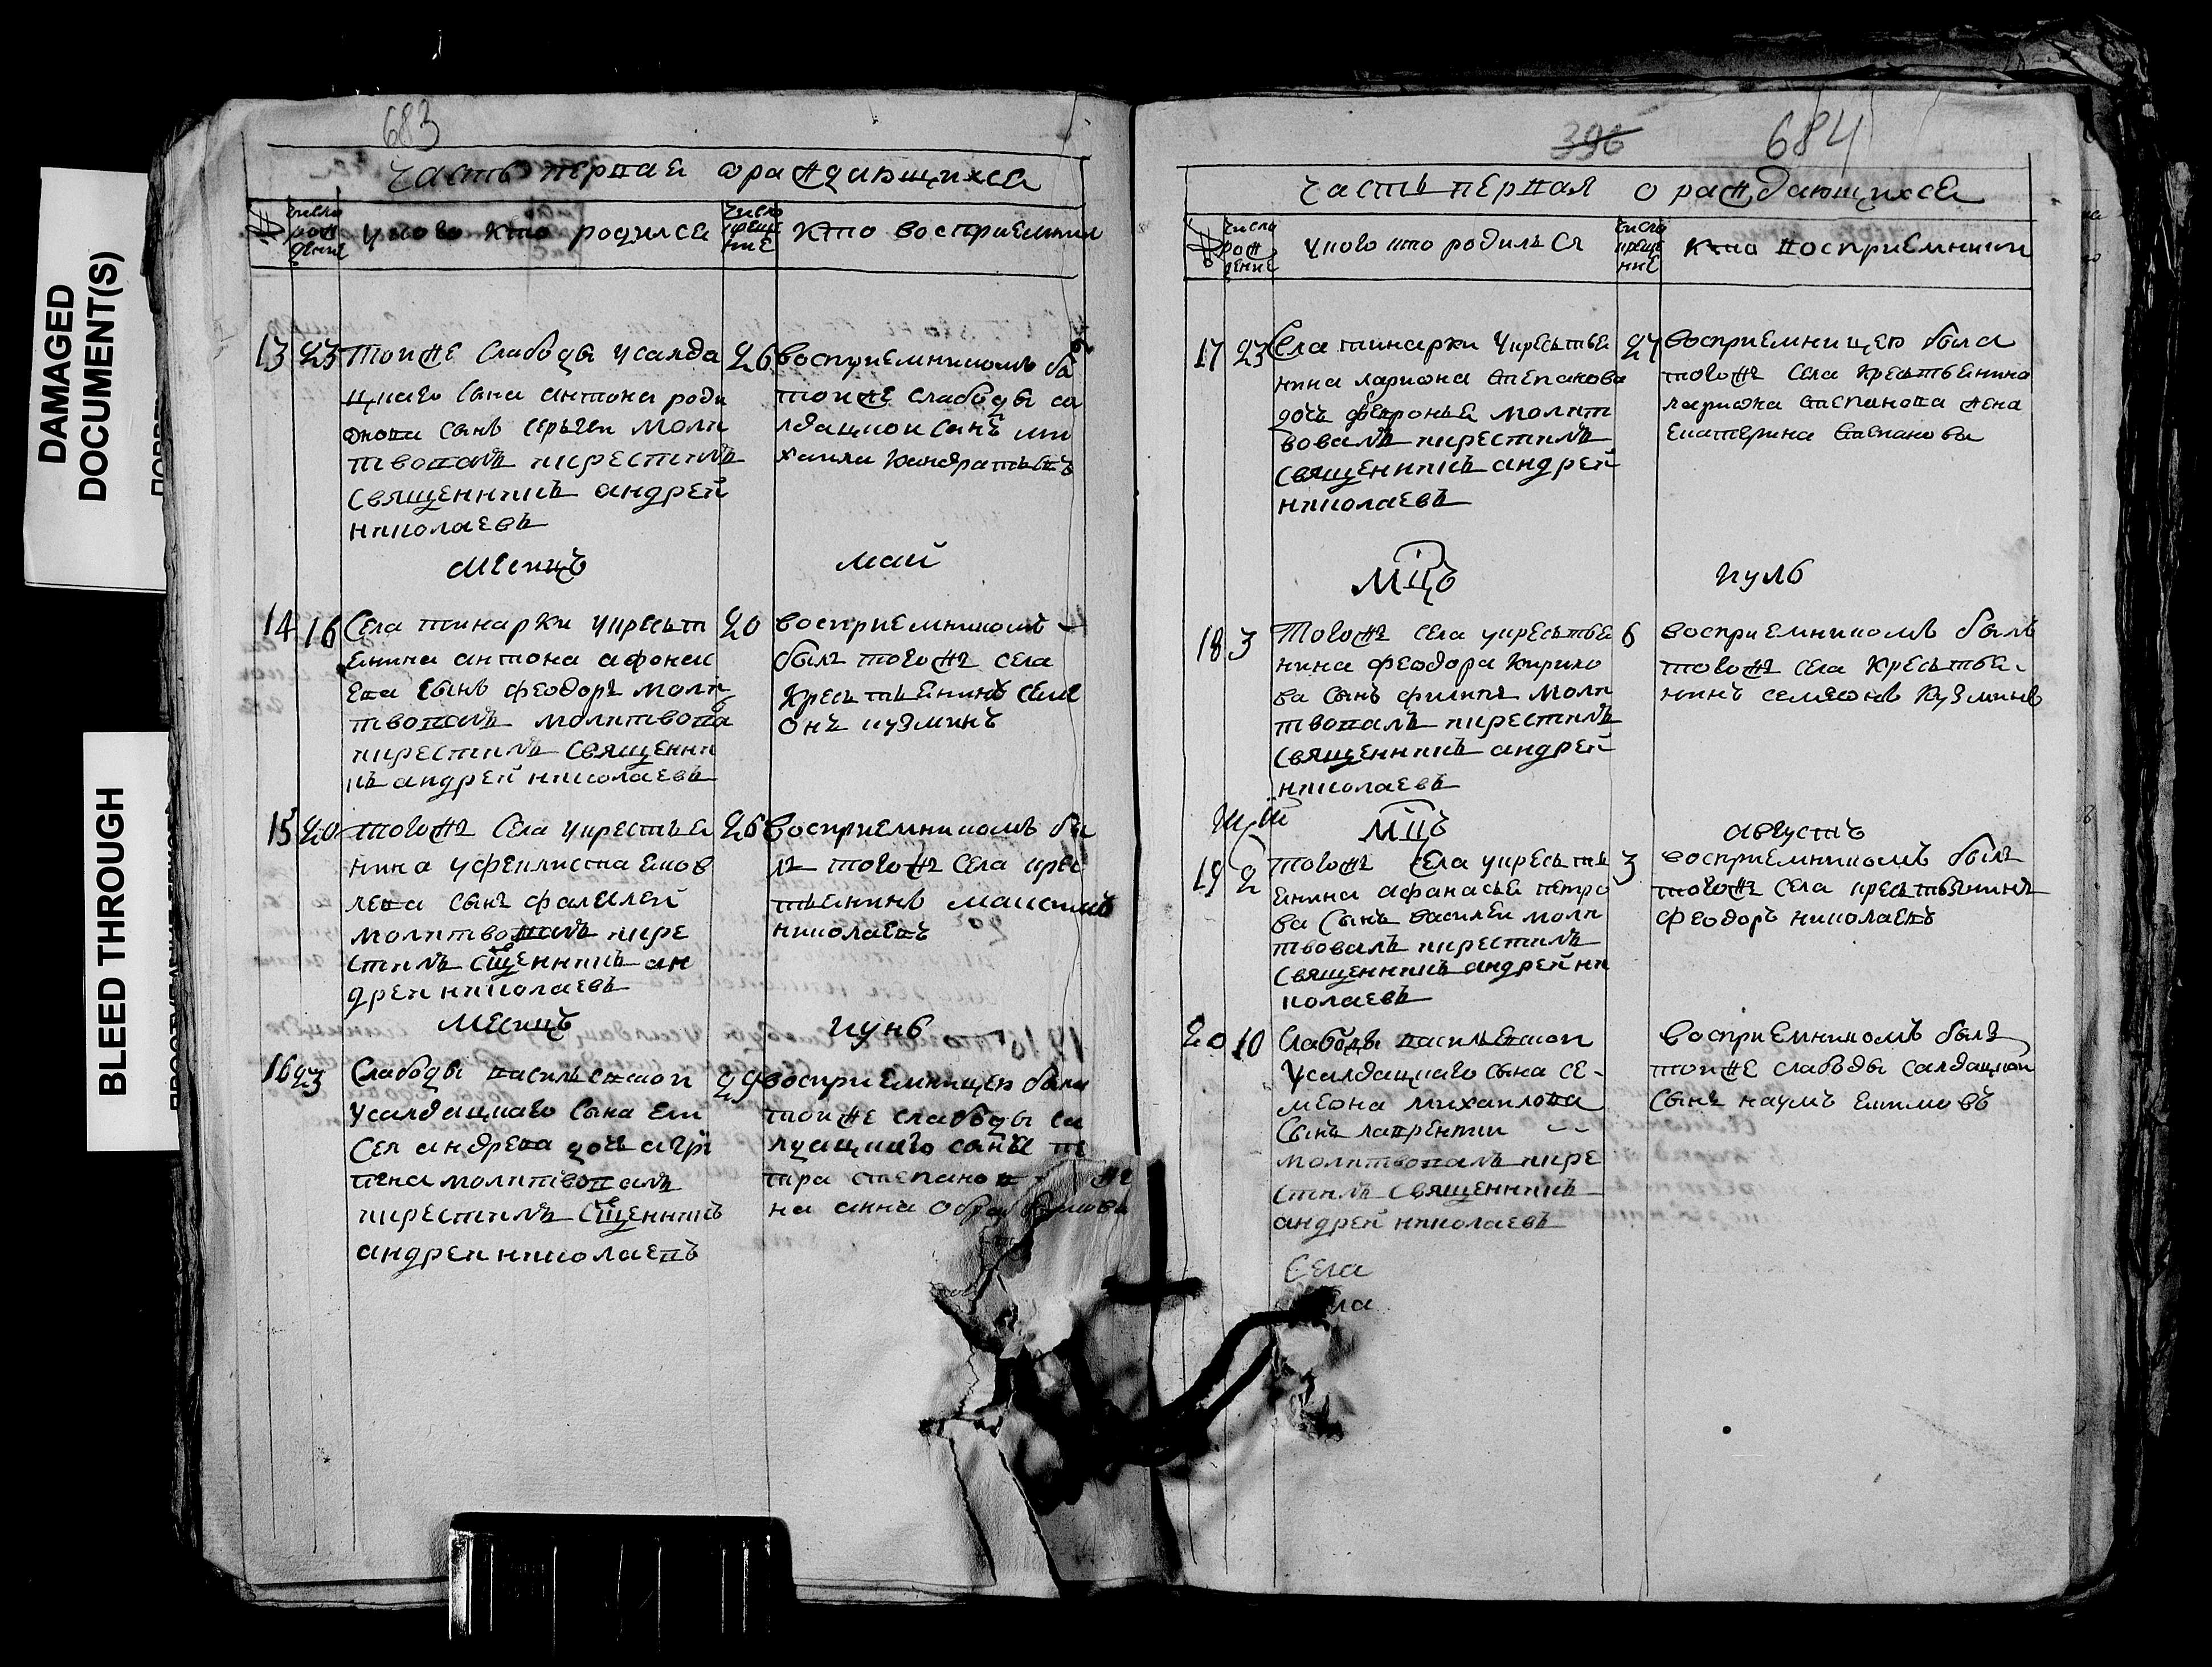 DAMAGED
DOCUMENT(S)
BLEED THROUGH
683
часть первая ораждающихся
№
число рождение
у ково кто родился
число крещение
кто восприемник
13
23
тойже слабоды усалда
цкаго сына антона роди
онова сынъ сергѣй моли
твовалъ икрестилъ
священникъ андрей
николаевъ
26
восприемникомъ бы
тойже слабоды са
лдацкои сынъ ми
хаила кандратьевъ
месяцъ
май
14
16
Села тинарки укресьт
янина антона афонас
ева сынъ феодоръ моли
твовалъ молитвова
икрестилъ священни
къ андрей николаевъ
20
восприемникомъ
былъ тогожъ села
кресьтьянинъ семе
онъ кузминъ
15
20
тогожъ села укрестья
нина уфеклиста еков
лева сынъ фалелей
молитвовалъ икре
стилъ сщенникъ ан
дреи николаевъ
26
восприемникомъ бы
лъ тогожъ села крес
тьянинъ максимъ
николаевъ
месяцъ
иунь
16
23
Слабоды васильевской
усалдацкаго сына ели
сея андрева дочь агри
пена молитвовалъ
икрестилъ сщенникъ
андреи николаевъ
29
восприемницею была
тойже слабоды са
лдацкаго сына пе
тра степанов же
на анна
396
684
часть первая о раждающихся
№
число рождение
у ково кто родилься
число крещение
кто восприемники
17
23
Села тинарки укресьтья
нина лариона степанова
дочь февронья молит
вовалъ икрестилъ
священникъ андрей
николаевъ
27
восприемницею была
тогожъ села кресьтьянина
лариона степанова жена
екатерина степанова
мцъ
иуль
18
3
Тогожъ села укресьтья
нина феодора кирило
ва сынъ филипъ моли
твовалъ икрестилъ
священникъ андрей
николаевъ
6
восприемникомъ былъ
тогожъ села кресьтья
нинъ семеонъ кузминъ
мцъ
августъ
19
2
тогожъ села укресьть
янина афанасья петро
ва сынъ василей моли
твовалъ икрестилъ
священникъ андрей ни
колаевъ
3
восприемникомъ былъ
тогожъ села кресьтьянинъ
феодоръ николаевъ
20
10
Слабоды васильевской
усалдацкаго сына се
меона михаилова
сынъ лаврентии
молитвовалъ икре
стилъ священникъ
андрей николаевъ
восприемникомъ былъ
тойже слабоды салдацкои
сынъ наумъ екимовъ
Села